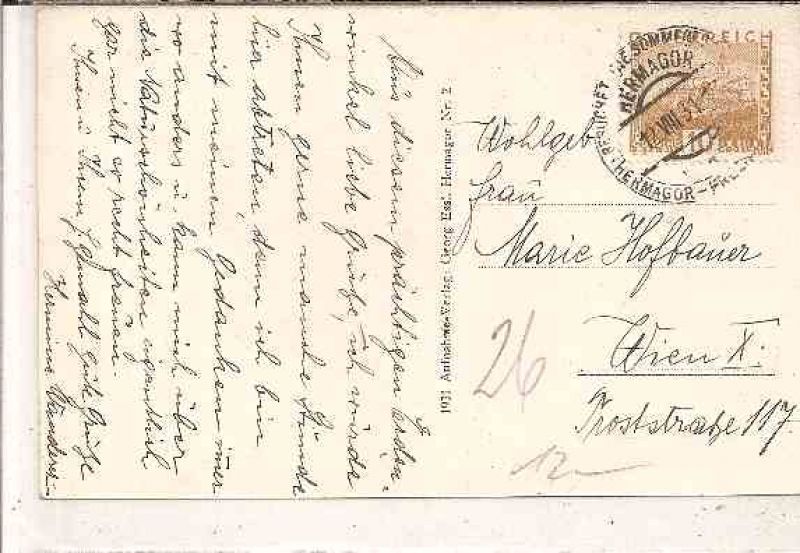 Aus diesem prächtigen Erden-
winkel liebe Grüße, ich würde
Ihnen gerne manche Stunde
hier abtreten, denn ich bin
mit meinen Gedanken immer
wo anders u. kann mich über
die Naturschönheiten eigentlich
gar nicht so recht freuen.
Ihnen u. Ihrem Gemahl gute Grüße
Hermine
1931 Aufnahme-Verlag: Georg Essl, Hermagor Nr. 2
REICH
BESUCHET DIE SOMMER
HERMAGOR
12.VIII.31
HERMAGOR-PRESS
10
Wohlgeb
Frau
Marie Hofbauer
Wien X.
Troststraße 117.
26
12